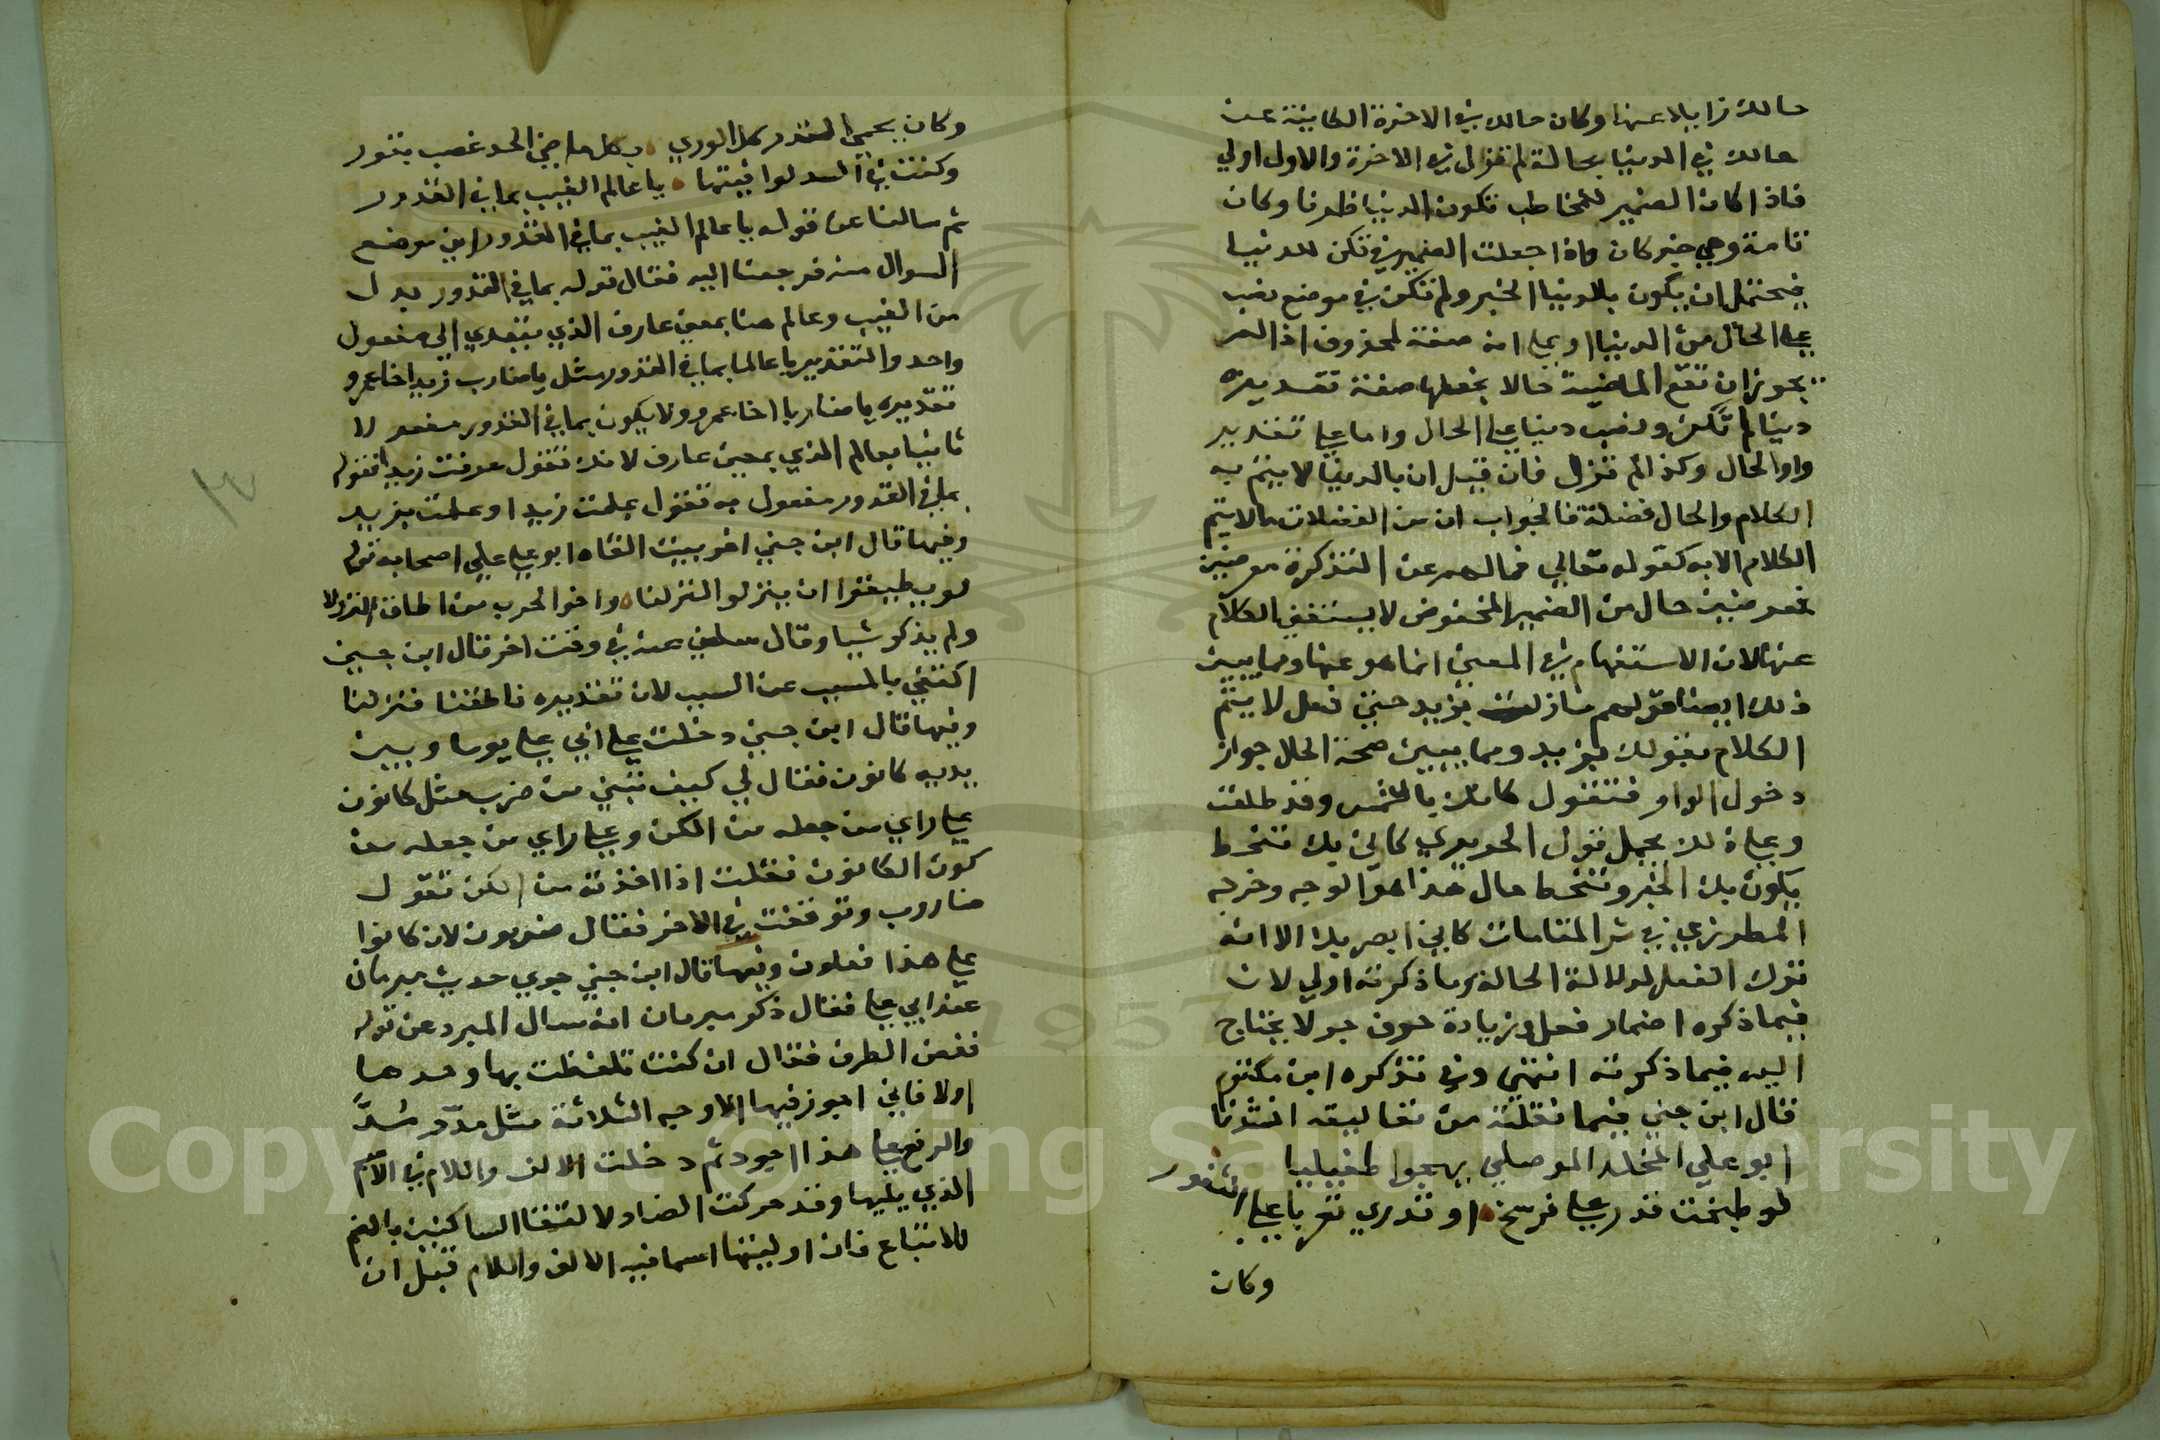 حالك زايلا عنها وكان حالك في الاخرة الكاينة عن
حالك في الدنيا بحالة لم تنزل في الاخرة والاول اولي
فاذا كان الضمير للمخاطب تكون الدنيا ظرفا وكان
تامة وهي خبر كان واذا جعلت الضمير في تكن للدنيا
فيحتمل ان يكون بالدنيا الخبر ولم تكن في موضع نصب
علي الحال من الدنيا او علي انه صفة لمحذوف اذا لم
يجوز ان تقع الماضية حالا بجعلها صفة تقديره
دنيا لم تكن ونصب دنيا علي الحال واما علي تقدير
واو الحال وكذا لم تزل فان قيل ان بالدنيا لا يتم به
الكلام والحال فضلة فالجواب ان من الفضلات مالا يتم
الكلام الا به كقوله تعالي فما لهم عن التذكرة معرضين
فمعرضين حال من الضمير المخفوض لا يستغني الكلام
عنها لان الاستفهام في المعني انما هو عنها ومما يبين
ذلك ايضا قولهم ما زلت بزيد حتي فعل لا يتم
الكلام بقولك بزيد ومما يبين صحة الحال جواز
دخول الواو فتقول كانك بالشمس وقد طلعت
وعلي ذلك يحمل قول الحريري كاني بك تنحط
يكون بك الخبر وتنحط حال هذا هو الوجه وخرجه
المطرزي في شر المقامات كاني ابصر بك الا انه
ترك الفعل لدلالة الحالة وما ذكرته اولي لان
فيما ذكره اضمار فعل وزيادة حرف جر لا يحتاج
اليه فيما ذكرته انتهي وفي تذكره ابن مكتوم
قال ابن جني فيما نقلته من تعاليقه انشدنا
ابو علي المخلد الموصلي يهجوا طفيليا
لو طبخت قدر علي فرسخ او قدري تقربا علي التنور
وكان
وكان يحمي القدر كل الوري بكل ماضي الحد غصب بتور
وكنت في السد لوافيتها يا عالم الغيب بما في القدور
ثم سالنا عن قوله يا عالم الغيب بما في القدور اين موضع
السوال منه فرجعنا اليه فقال قوله بما في القدور بدل
من الغيب وعالم هنا بمعني عارف الذي يتعدي الي مفعول
واحد والتقدير يا عالما بما في القدور مثل يا ضارب زيد اخا عمرو
تقديره يا ضاربا اخا عمرو ولا يكون بما في القدور مفعولا
ثانيا بعالم الذي بمعني عارف لانك تقول عرفت زيدا فقوله
بما في القدور مفعول به تقول علمت زيدا وعلمت بزيد
وفيها قال ابن جني اخر بيت القاه ابو علي علي اصحابه قوله
لو يطيقوا ان ينزلوا النزلنا واخو الحرب من اطاق النزولا
ولم يذكر شيا وقال معلني عنه في وقت اخر قال ابن جني
اكتفي بالمسبب عن السبب لان تقديره فاطقنا فنزلنا
وفيها قال ابن جني دخلت علي ابي علي يوما وبين
يديه كانون فقال لي كيف تبني من ضرب مثل كانون
علي راي من جعله من الكن وعلي راي من جعله من
كون الكانون فقلت اذا اخذته من الكن تقول
ضاروب وتوقفت في الاخر فقال ضربون لان كانوا
علي هذا فعلون وفيها قال ابن جني جري حديث مبرمان
عند ابي علي فقال ذكر مبرمان انه سال المبرد عن قوله
فغض الطرف فقال ان كنت تلفظت بها وحدها
اولا فاني اجوز فيها الاوجه الثلاثة مثل مدّ وشدّ
والرفع علي هذا اجود ثم دخلت الالف واللام في الاسم
الذي يليها وقد حركت الضاد لالتقا الساكنين بالضم
للاتباع فان اوليتها اسما فيه الالف واللام قبل ان